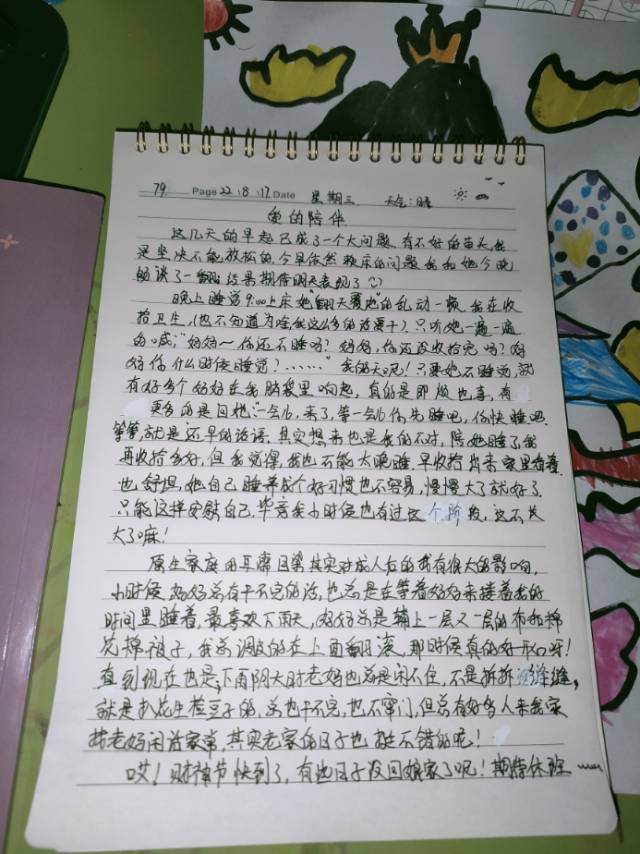 79. Page 22.8.17 Date 星期三 天气:晴
她的陪伴
这几天的早起已成了一个大问题,有不好的苗头,我
是坚决不能放松的,今早依然赖床的问题,我和她今晚
畅谈了一翻,结果期待明天表现了
晚上睡觉9:00上床她"翻天覆地"的乱动一顿,我在收
拾卫生,(也不知道为啥我这么多的活要干),只听她一遍一遍
的喊;"妈妈~你还不睡吗?妈妈,你还没收拾完吗?妈
妈你什么时候睡觉?……"我的天呢!只要她不睡觉,就
有好多个妈妈在我脑袋里响起,有的是即烦也喜,有
更多的是回她一会儿,来了,等一会儿你先睡吧,你快睡吧
等等,就是还早的话语,其实想来也是我的不对,陪她睡了我
再收拾多好,但我觉得,我也不能太晚睡,早收拾出来家里看着
也舒坦,她自己睡养成个好习惯也不容易,慢慢大了就好了
只能这样安慰自己,毕竟我小时候也有过这个阶段,这不长
大了嘛!
原生家庭的耳濡目染其实对成人后的我有很大的影响,
小时候,妈妈总有干不完的活,也总是在等着妈妈来搂着我的
时间里睡着,最喜欢下雨天,妈妈总是铺上一层又一层的布和棉
花棉被子,我总调皮的在上面翻滚,那时候真的好开心呀!
直到现在也是,下雨阴天时老妈也总是闲不住,不是拆拆缝缝,
就是扒花生捡豆子的,总也干不完,也不串门,但总有好多人来我家
找老妈闲话家常,其实老家的日子也挺不错的呢!
哎!财神节快到了,有些日子没回娘家了呢!期待休班~~